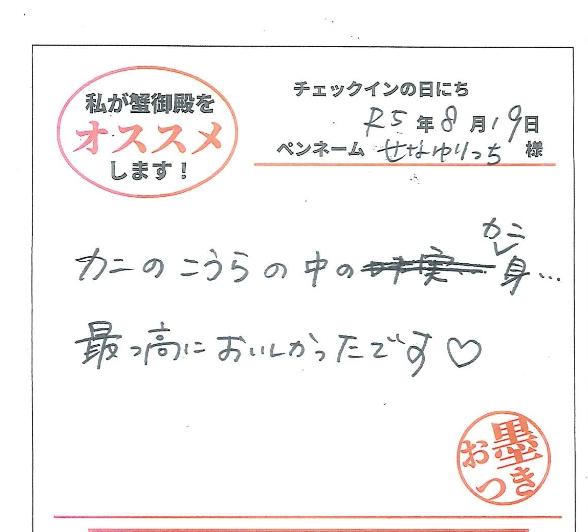 私が蟹御殿を
オススメ
します！
チェックインの日にち
R5年8月19日
ペンネーム せなゆりっち 様
カニのこうらの中のカニ身…
最っ高においしかったです♡
お墨つき